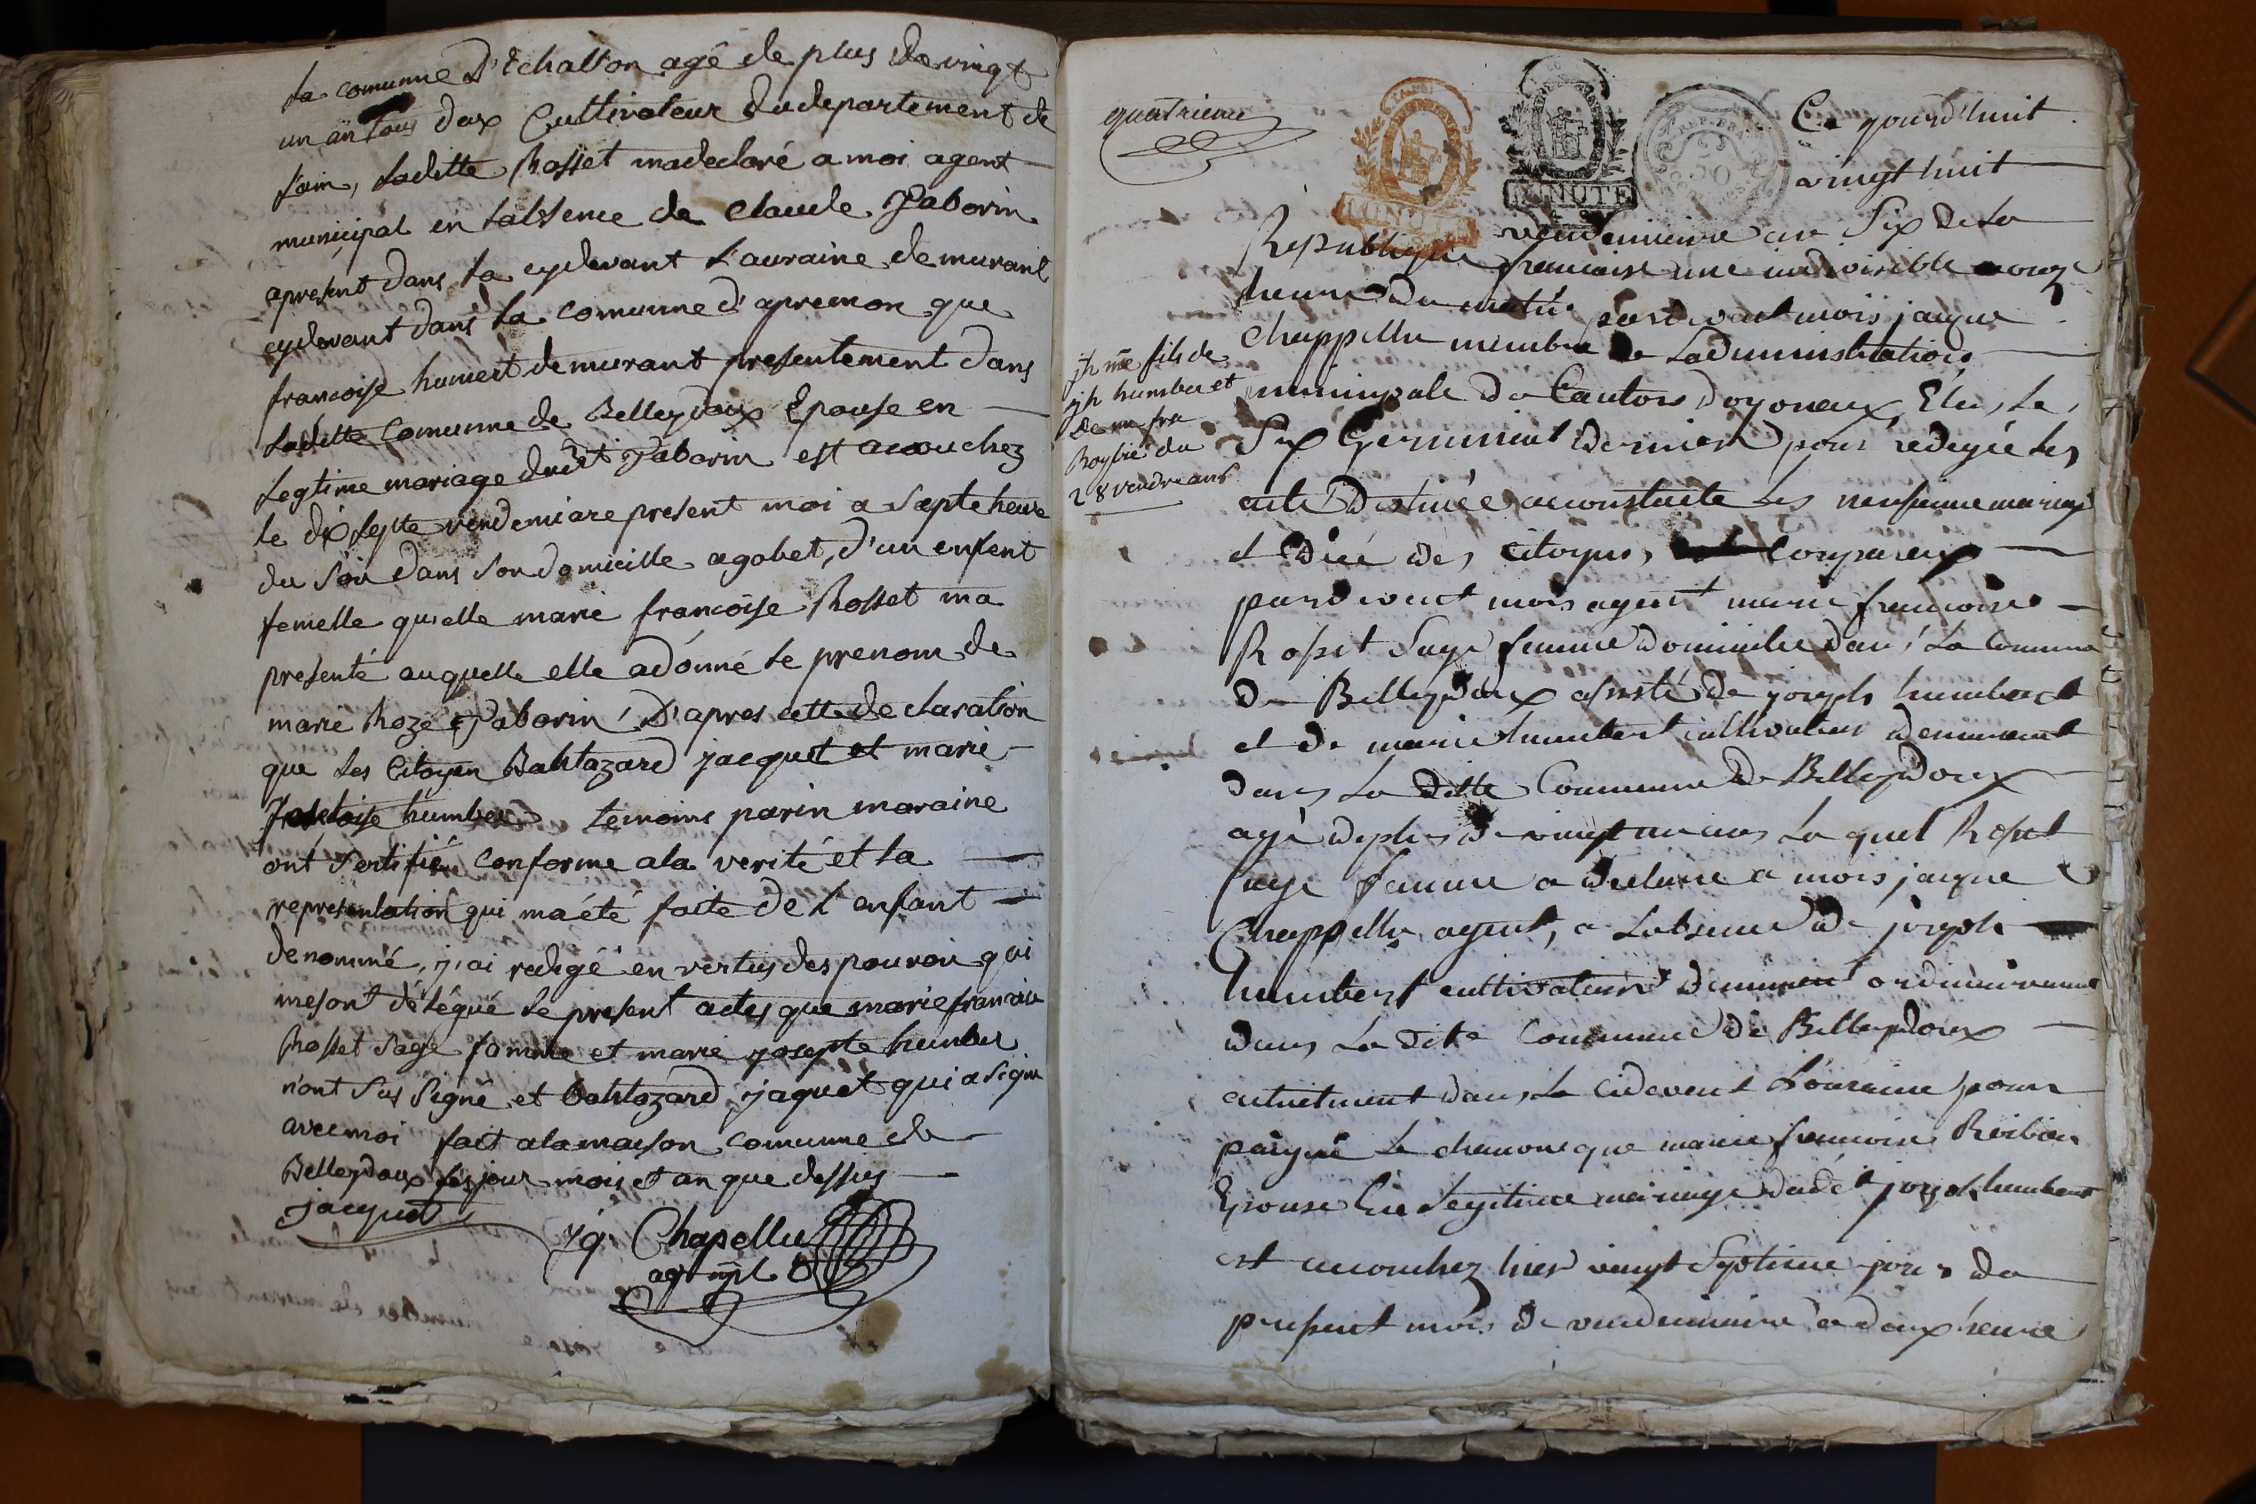 la comunne D'Echallon agé de plus de vingt
un an tous dox Cultivateur du departement de
l'ain, ladette Rosset ma declaré a moi agent
municipal en l'absence de claude Paborin
apresent dans la cydevant Lauraine demurant
cydevant dans la comunne d'apremon que
francoise humert demurant presentement dans
ladette Comunne de Belleydoux Epouse en
legtime mariage dudit Paborin est acouchez
le dix septe vendemiare present moi a septe heure
du soir dans son domicille a gobet, d'un enfent
femelle quelle marie francoise Rosset ma
presenté auquelle elle adónné le prenom de
marie Roze Paborin D'apres cette declaration
que les Citoyen Baltazard jacquet et marie
humber temoins parin maraine
ont sertifié conforme ala verité et la
representation qui ma été faite de l'enfant
denommé, j,ai redigé en vertus des pouvoir qui
me sont délégué le present actes que marie francoise
Rosset sage famme et marie josepte humber
n'ont sus signé et baltazard jaquet qui a signe
avec moi fait ala maison comunne de
Belleydoux les jour mois et an que dessus
jacquet
Chapellu
agt mpl
quatrieme
MINUTE
REP. FRA
50
Ce jourd'huit
vingt huit
vendemiaire an Six de la
Republique francaise une indivisible a onze
heure du matin pardevant mois jacque
Chappellu membre de Ladministration
municipale du Canton d'oyonnax, Elu, le
Six Germinal dernier pour redegée les
acte Destinée a constaté les nessance mariage
et déce des citoyens, Compareux
pardevant mois agent marie francoise
Rosset Sage femme domicilie dans la Commune
de Belleydoux assisté de joseph humbert
et de marie humbert cultivateur demeurant
dans la ditte Commune de Belleydoux
agé de plus de vingt un ans la quel Rosset
sage femme a declare a mois jacque
Chappellu agent, a Labsence de joseph
humbert cultivateur demeurent ordinairement
dans La dite Commune de Belleydoux
actuelment dans La cidevent Loraine pour
paigné le chanvre que marie francoise Roibier
Epouse En Legitime mariage dudit joseph humbert
est acouchez hier vingt Septieme jour du
present mois de vendemiaire a deux heure
jh me fils de
jh humber et
de m fra
Roybié du
28 vendre an 6